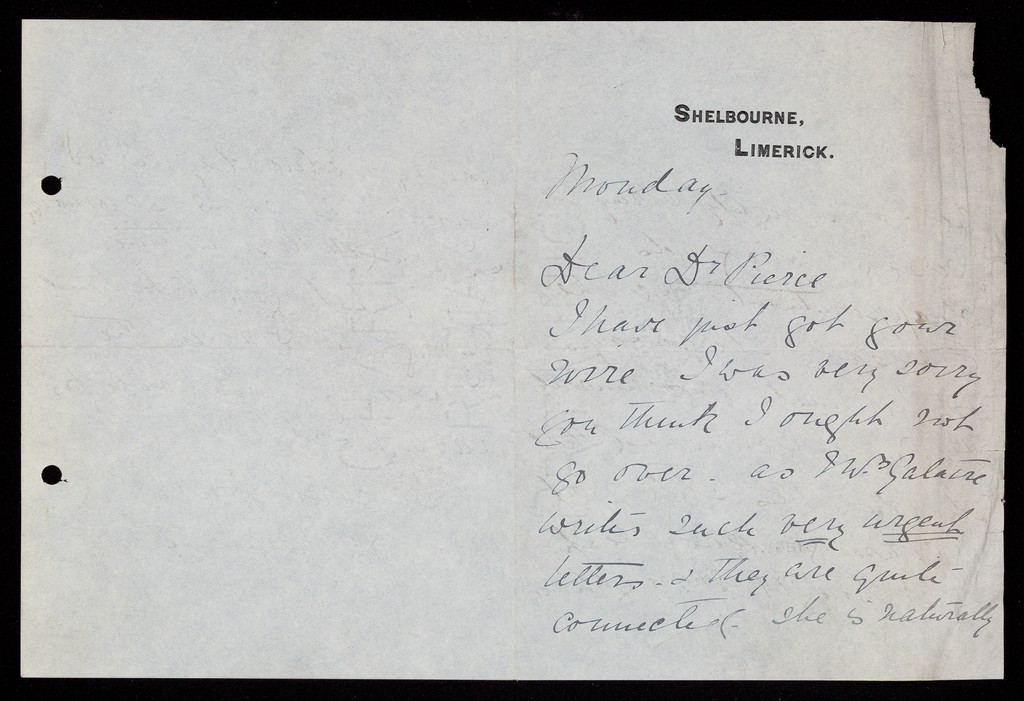 SHELBOURNE,
LIMERICK.
Monday.
Dear Dr Pierce
I have just got your
wire I was very sorry
you think I ought not
go over. as
writes such very urgent
letters. & they are quite
connected. she is naturally